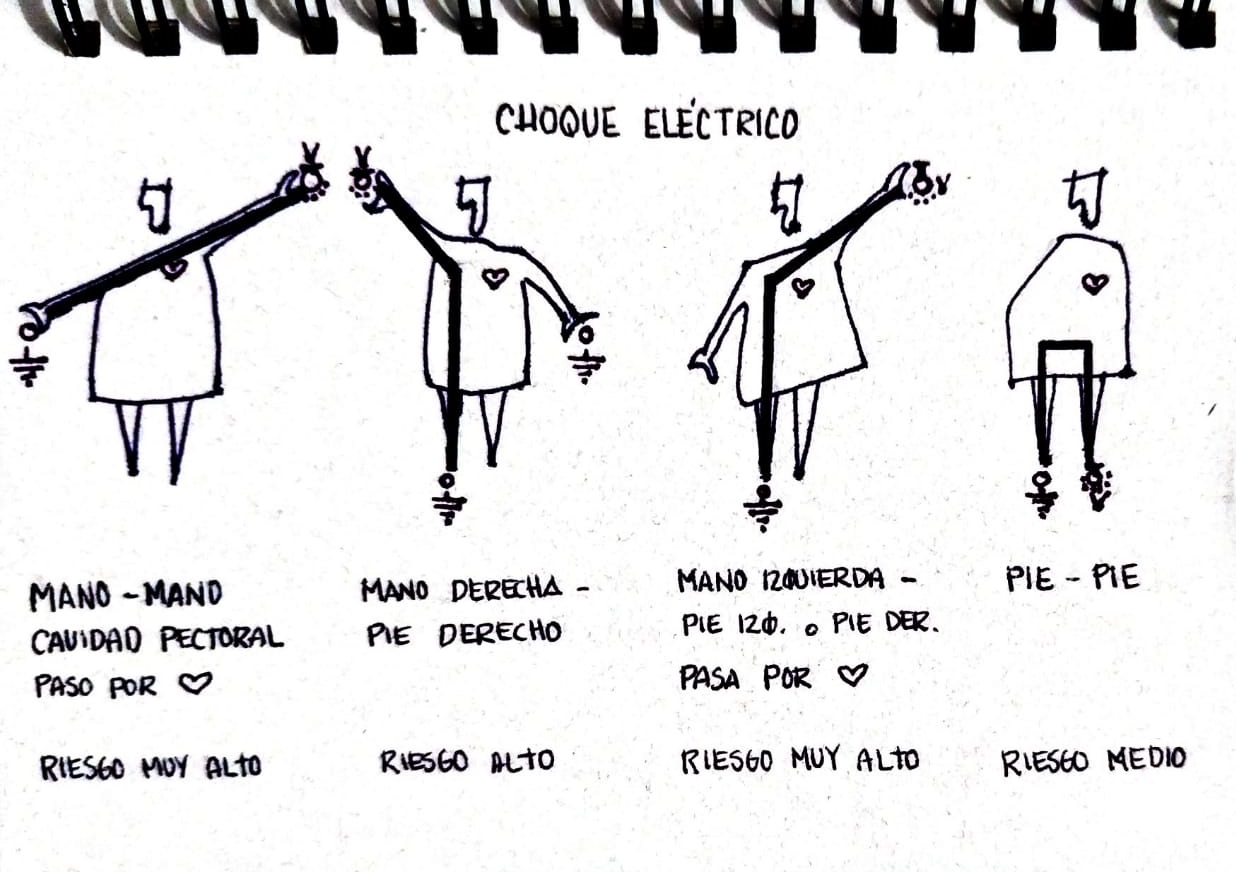 CHOQUE ELÉCTRICO
V
V
V
V
MANO - MANO
CAVIDAD PECTORAL
PASO POR ♡
RIESGO MUY ALTO
MANO DERECHA -
PIE DERECHO
RIESGO ALTO
MANO IZQUIERDA -
PIE IZQ. o PIE DER.
PASA POR ♡
RIESGO MUY ALTO
PIE - PIE
RIESGO MEDIO